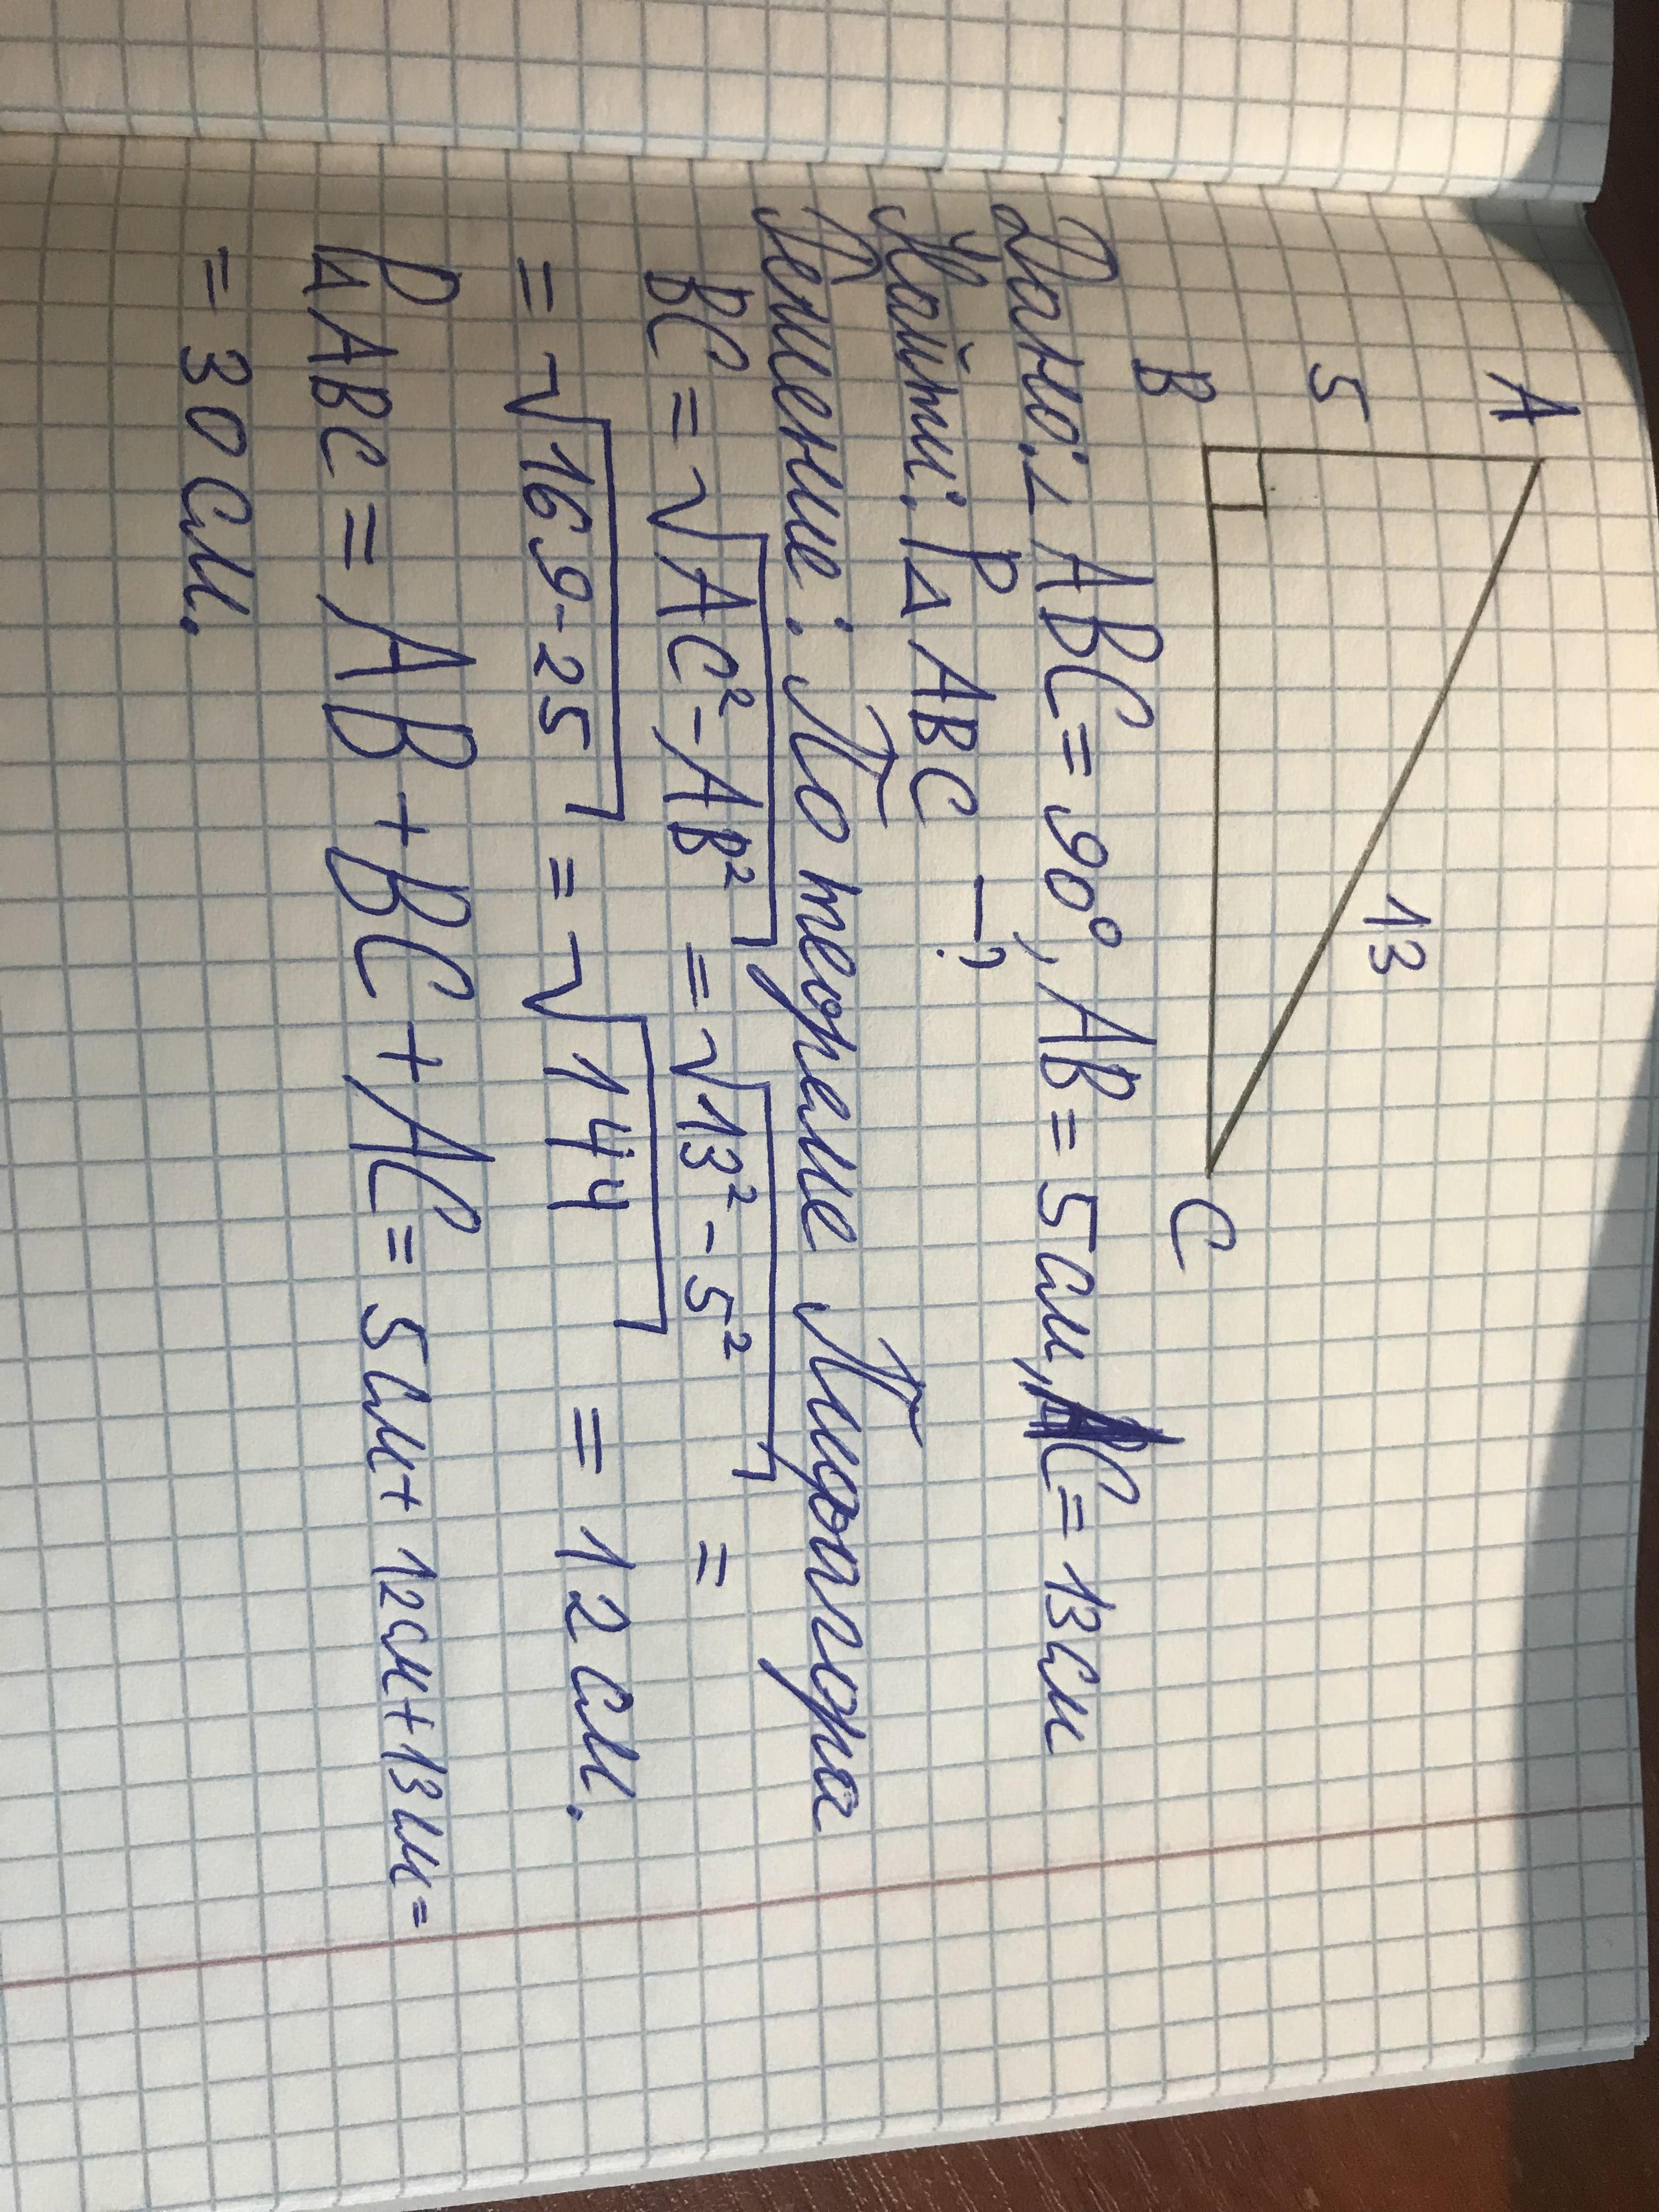 A
5
13
B
C
Дано: ∠ABC = 90°, AB = 5см, AC = 13см
Найти: P△ABC – ?
Решение: По теореме Пифагора
BC = √AC² - AB² = √13² - 5² =
= √169-25 = √144 = 12 см.
P△ABC = AB + BC + AC = 5 см + 12 см + 13 см =
= 30 см.